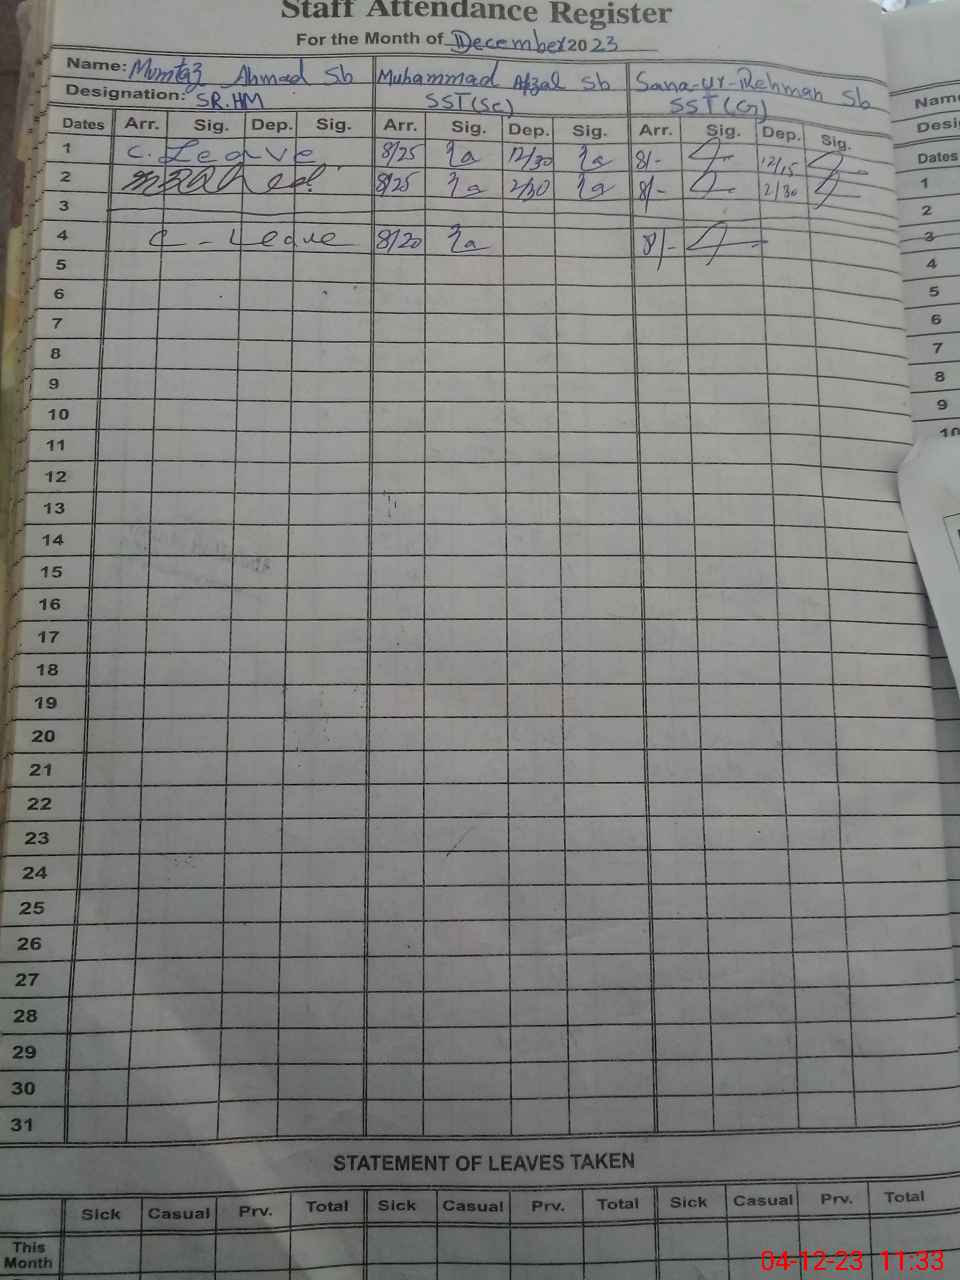 Staff Attendance Register
For the Month of December 2023
Name: Mumtaz Ahmad Sb Muhammad Afzal Sb Sana-ur-Rehman Sb
Designation: SR.HM SST(Sc) SST(G)
Dates Arr. Sig. Dep. Sig. Arr. Sig. Dep. Sig. Arr. Sig. Dep. Sig.
1 C. Leave 8/25 12/30 8/- 12/15
2 8/25 2/30 8/- 2/30
3
4 C - Leave 8/20 8/-
5
6
7
8
9
10
11
12
13
14
15
16
17
18
19
20
21
22
23
24
25
26
27
28
29
30
31
STATEMENT OF LEAVES TAKEN
Sick Casual Prv. Total Sick Casual Prv. Total Sick Casual Prv. Total
This
Month
Name
Desi
Dates
1
2
3
4
5
6
7
8
9
10
04-12-23 11:33